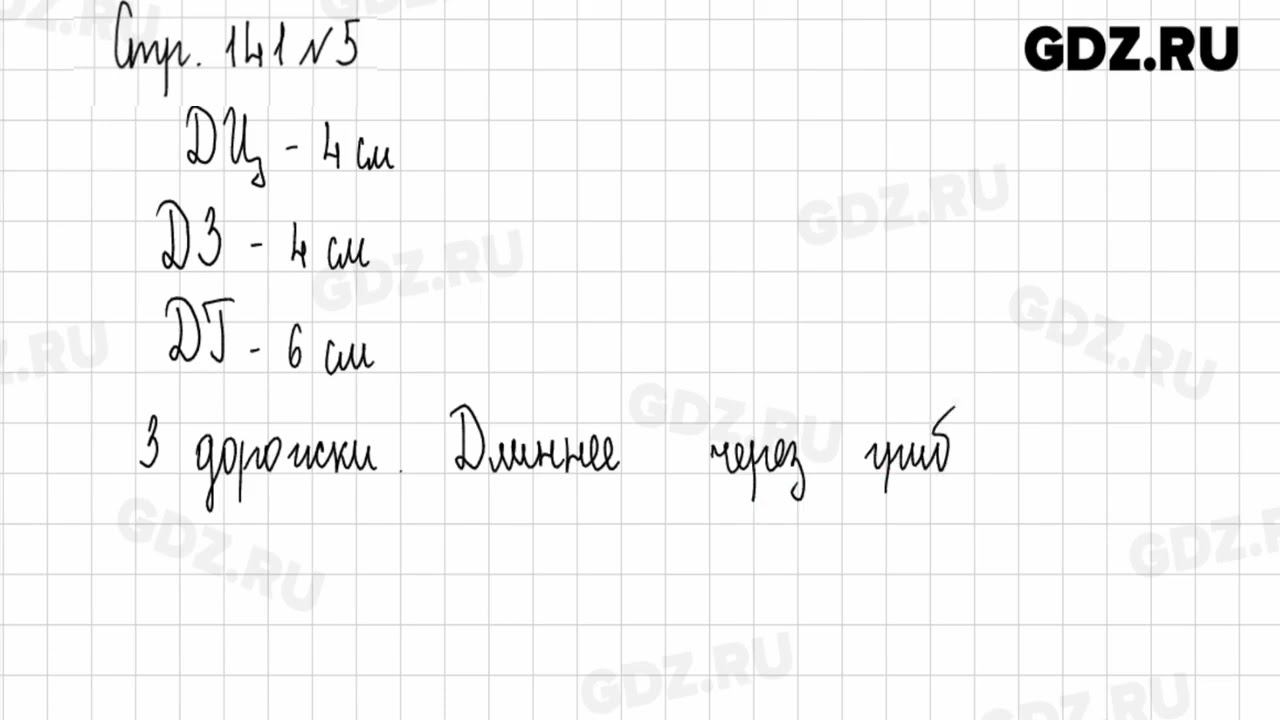 Стр. 141 №5
GDZ.RU
ДЦ - 4 см
ДЗ - 4 см
ДГ - 6 см
3 дорожки. Длиннее через гриб